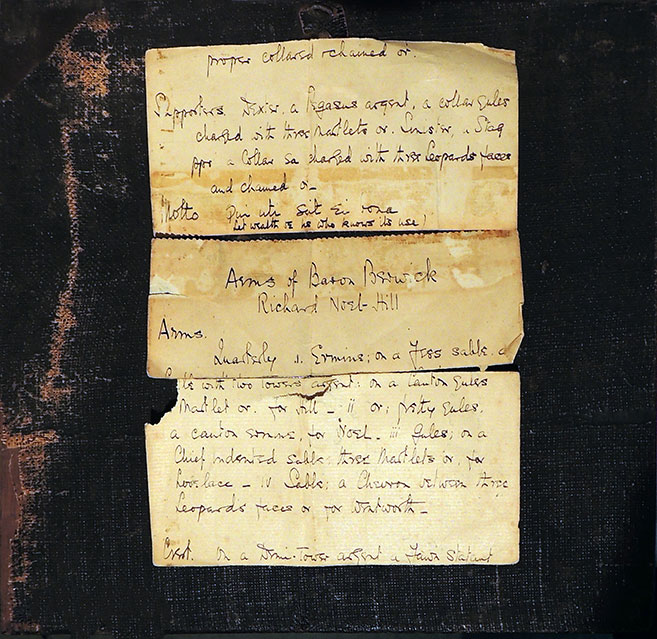 proper collared & chained or.
Supporters. Dexter, a Pegasus argent, a collar Gules
charged with three Martlets or. Sinister, a Stag
ppr a Collar sa charged with three Leopards faces
and chained or _
Motto Qui uti Scit Ei Bona
Let wealth be his who knows its use,
Arms of Baron Berwick
Richard Noel-Hill
Arms.
Quarterly 1. Ermine; on a Fess sable. a
Castle with two towers argent: on a Canton Gules
Martlet or. for Hill _ ii or; fretty Gules,
a canton ermine, for Noel _ iii Gules; on a
Chief indented sable. three Martlets or. for
Lovelace _ IV Sable; a Chevron between three
Leopards faces or for Wentworth _
Crest. On a Demi-Tower argent a Fawn Statant